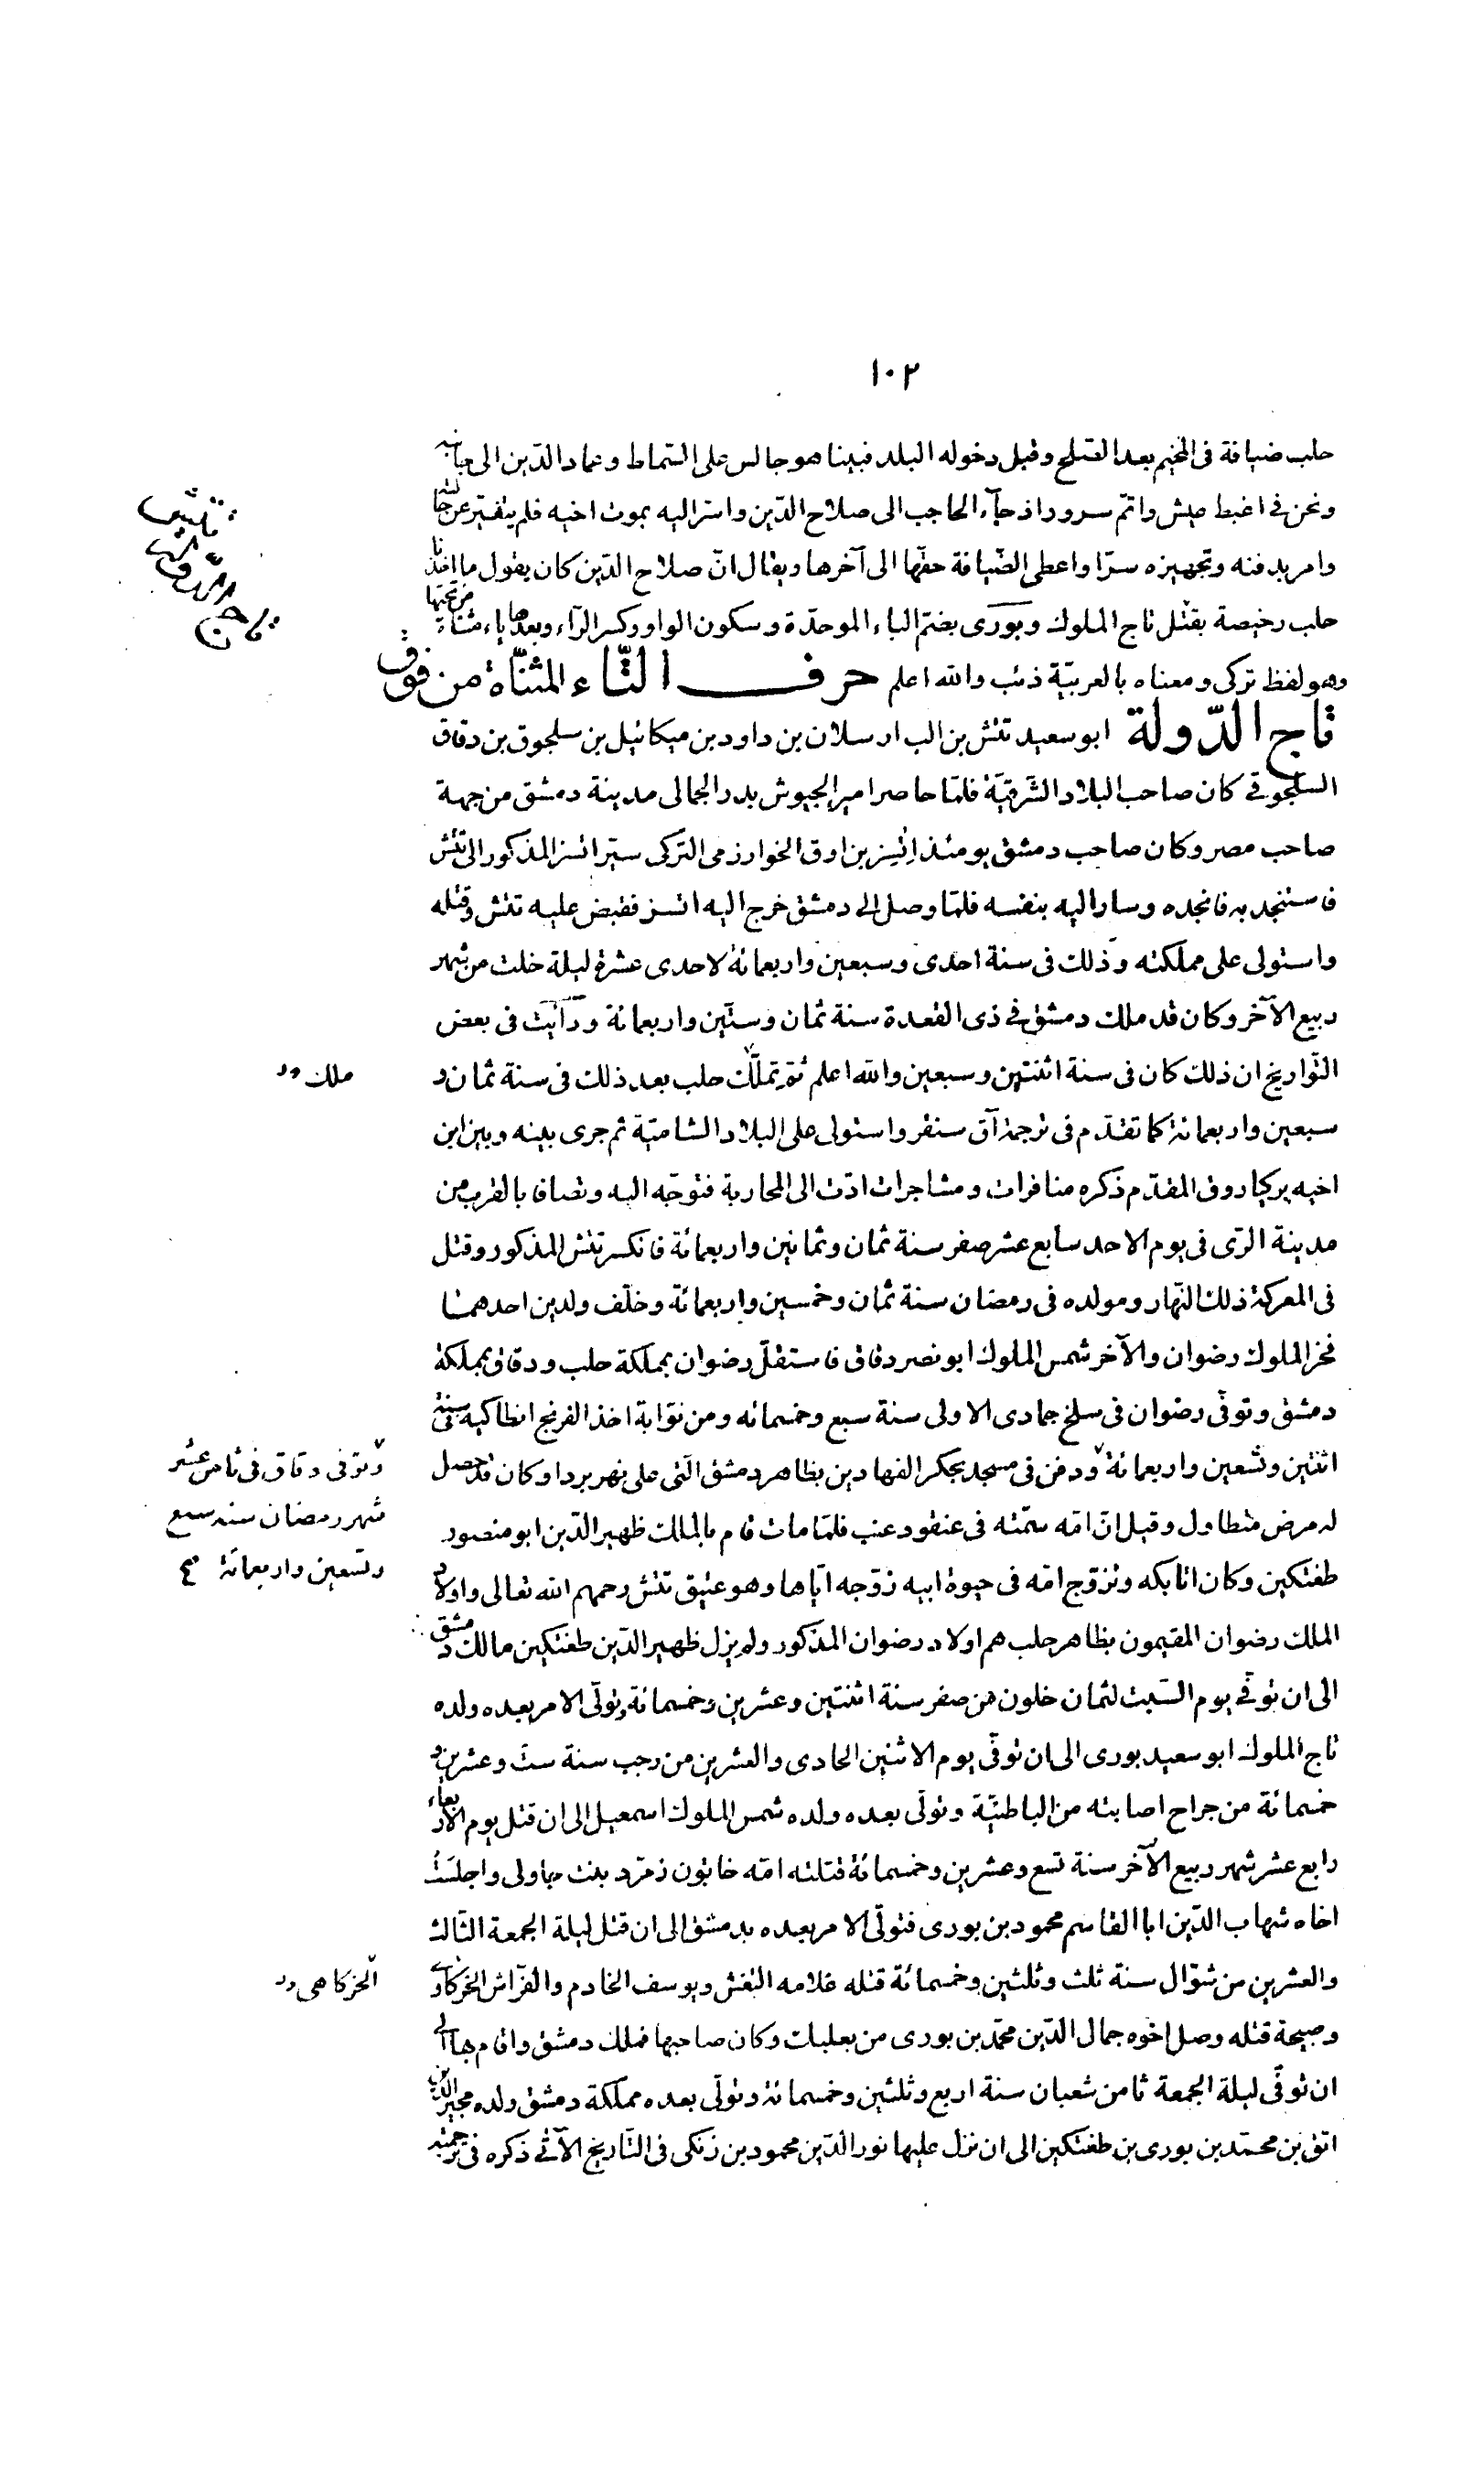 ١٠٢
حلب ضيافة فى المخيم بعد الصلح وقبل دخوله البلد فبينا هو جالس على السّماط وعماد الدّين الى جانبه
ونحن فى اغبط عيش واتمّ سرور اذ جآء الحاجب الى صلاح الدّين واسرّ اليه بموت اخيه فلم يتغيّر عن حالته
وامر بدفنه وتجهيزه سرّا واعطى الضّيافة حقّها الى آخرها ويقال انّ صلاح الدّين كان يقول ما اخذنا
حلب رخيصة بقتل تاج الملوك وبورى بضمّ الباء الموحدّة وسكون الواو وكسر الرآء وبعدها ياء مثناة من تحتها
وهو لفظ تركى ومعناه بالعربيّة ذئب والله اعلم حرف التّاء المثنّاة من فوق
تاج الدّولة ابو سعيد تتش بن الب ارسلان بن داود بن ميكائيل بن سلجوق بن دقاق
السلجوقى كان صاحب البلاد الشّرقيّة فلمّا حاصر امير الجيوش بدر الجمالى مدينة دمشق من جهة
صاحب مصر وكان صاحب دمشق يومئذ اتسِز بن اوق الخوارزمى التركى سيّر اتسز المذكور الى تتش
فاستنجد به فانجده وسار اليه بنفسه فلمّا وصل الى دمشق خرج اليه اتسز فقبض عليه تتش وقتله
واستولى على مملكته وذلك فى سنة احدى وسبعين واربعمائة لاحدى عشرة ليلة خلت من شهر
ربيع الآخر وكان قد ملك دمشق فى ذى القعدة سنة ثمان وستّين واربعمائة ورأيت فى بعض
التّواريخ ان ذلك كان فى سنة اثنتين وسبعين والله اعلم ثمّ تملّك حلب بعد ذلك فى سنة ثمان و
ملك
سبعين واربعمائة كما تقدّم فى ترجمة آق سنقر واستولى على البلاد الشاميّة ثم جرى بينه وبين ابن
اخيه بركياروق المقدّم ذكره منافرات ومشاجرات ادّت الى المحاربة فتوجّه اليه وتصافا بالقرب من
مدينة الرّى فى يوم الاحد سابع عشر صفر سنة ثمان وثمانين واربعمائة فانكسر تتش المذكور وقتل
فى المعركة ذلك النّهار ومولده فى رمضان سنة ثمان وخمسين واربعمائة وخلّف ولدين احدهما
فخر الملوك رضوان والآخر شمس الملوك ابو نصر دقاق فاستقلّ رضوان بمملكة حلب ودقاق بمملكة
دمشق وتوفّى رضوان فى سلخ جمادى الاولى سنة سبع وخمسمائه ومن نوّابة اخذ الفرنج انطاكية فى سنة
اثنتين وتسعين واربعمائة ودفن فى مسجد بحكر الفهادين بظاهر دمشق الّتى على نهر بردا وكان قد حصل
وتوفى دقاق فى ثامن عشر
شهر رمضان سنه سبع
وتسعين واربعمائة
له مرض متطاول وقيل انّ امّه سمّته فى عنقود عنب فلمّا مات قام بالملك ظهير الدّين ابو منصور
طغتكين وكان اتابكه وتزوّج امّه فى حيوة ابيه زوّجه ايّاها وهو عتيق تتش رحمهم الله تعالى واولاد
الملك رضوان المقيمون بظاهر حلب هم اولاد رضوان المذكور ولم يزل ظهير الدّين طغتكين مالك دمشق
الى ان توفّى يوم السّبت لثمان خلون من صفر سنة اثنتين وعشرين وخمسمائة وتولّى الامر بعده ولده
تاج الملوك ابو سعيد بورى الى ان توفّى يوم الاثنين الحادى والعشرين من رجب سنة ستّ وعشرين و
خمسمائة من جراح اصابته من الباطنيّة وتولّى بعده ولده شمس الملوك اسمعيل الى ان قتل يوم الاربعاء
رابع عشر شهر ربيع الآخر سنة تسع وعشرين وخمسمائة قتلته امّه خاتون زمرّد بنت جاولى واجلست
اخاه شهاب الدّين ابا القاسم محمود بن بورى فتولّى الامر بعده بدمشق الى ان قتل ليلة الجمعة الثالث
والعشرين من شوّال سنة ثلث وثلثين وخمسمائة قتله غلامه البغش ويوسف الخادم والفرّاش الخركاوى
الخركاهى
وصبيحة قتله وصل اخوه جمال الدّين محمّد بن بورى من بعلبك وكان صاحبها فملك دمشق واقام بها الى
ان توفّى ليلة الجمعة ثامن شعبان سنة اربع وثلثين وخمسمائة وتولّى بعده مملكة دمشق ولده مجير الدّين
اتق بن محمّد بن بورى بن طغتكين الى ان نزل عليها نور الدّين محمود بن زنكى فى التّاريخ الآتى ذكره فى ترجمته